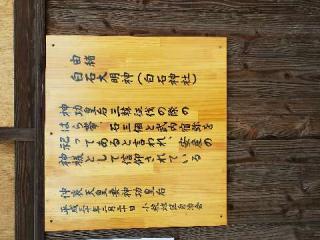 由緒
白石大明神(白石神社)
神功皇后三韓征伐の際の
はら帯、石三個と武内宿弥を
祀ってあると言われ、安産の
神様として信仰されている
仲哀天皇妻神功皇后
平成三十年二月二十日 小 地区自治会